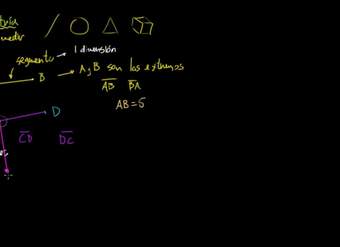 segmento → 1 dimensión
B → A y B son los extremos
AB BA
AB = 5
D
CD DC